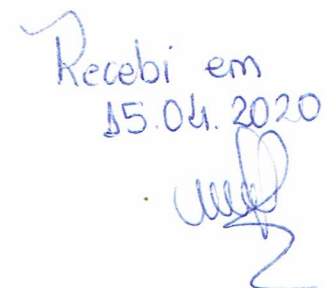 Recebi em
15.04.2020